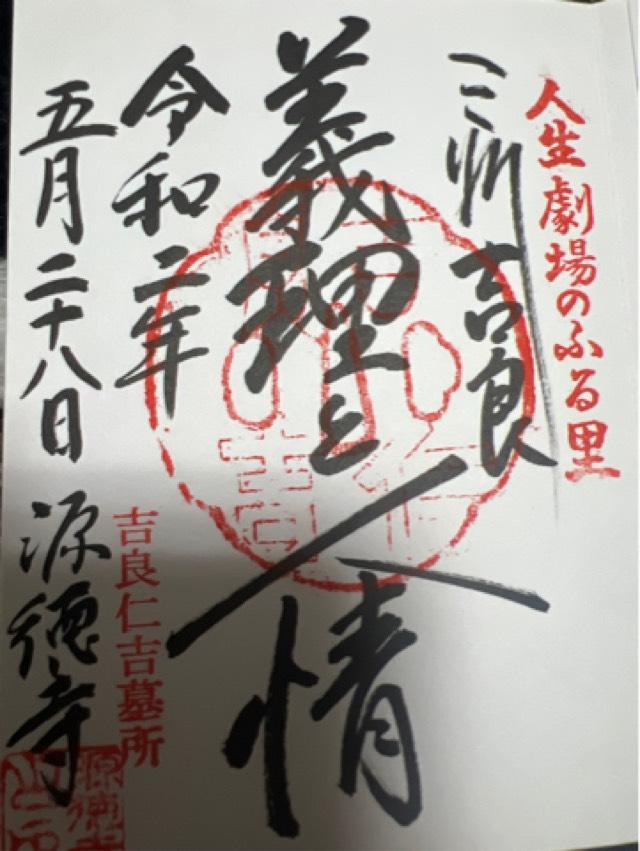 人生劇場のふる里
三州 吉良
義理と人情
令和二年
五月二十八日 源徳寺
吉良仁吉墓所